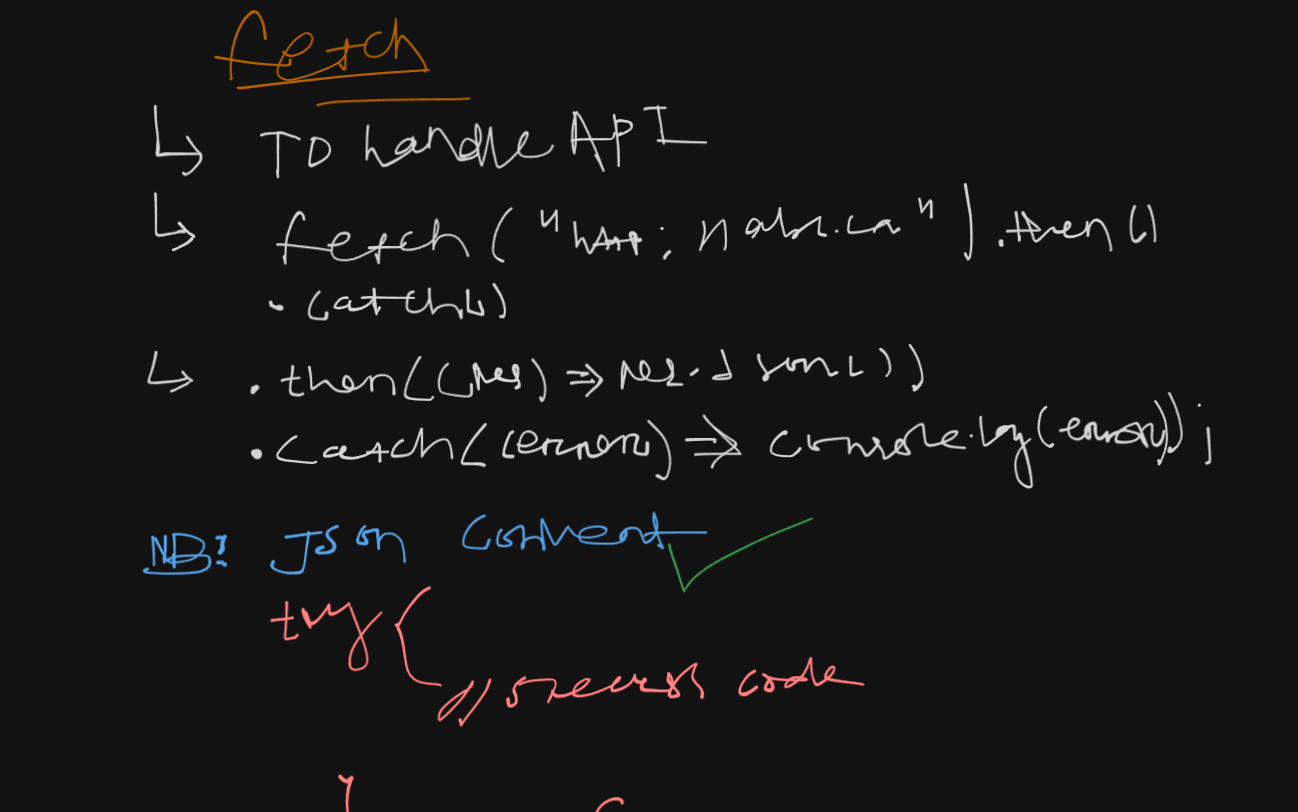 fetch
To handle API
fetch(" ").then()
.catch()
.then((res) => res.json())
.catch((error) => console.log(error));
NB: Json Convert
try {
// success code
}